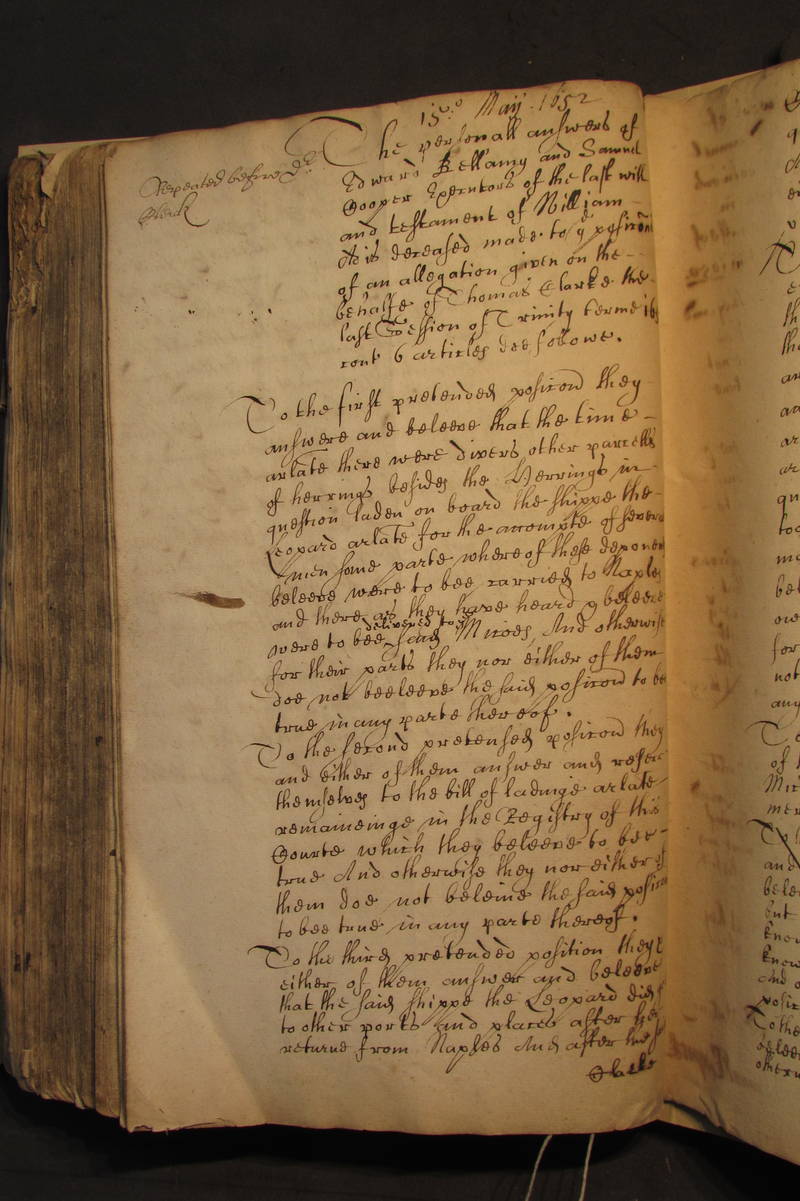 15º May. 1652
Repeated before Dr
Clerk
The personall answers of
Edward Bellamy and Samuel
Cooper Executors of the last will
and testament of William
made to ye posicons
of an allegation given on the
behalfe of Thomas Clarke the
last Session of Trinity terme
6 articles doe followe.
To the first pretended posicon they
answere and beleeve that the time
arlate there were divers other parcells
of herrings besides the Herrings in
question laden on board the shippe the
Leopard arlate for the accompte of severall
men some parte whereof these deponents
beleeve were to bee carried to Naples
and there as they have heard & beleeve
delivered to
were to bee said Mices, And otherwise
for their parts they nor either of them
doe not beeleeve the said posicon to be
true in any parte thereof.
To the second pretensed posicon they
and either of them answer and referr
themselves to the bill of ladinge arlate
remaineinge in the Registry of this
Courte which they beleeve to bee
true And otherwise they nor either of
them doe not beleive the said posicon
to bee true in any parte thereof.
To the third pretended position they &
either of them answer and beleeve
that the said shippe the Leopard did
to other ports and places after her
returne from Naples And after
Clarke